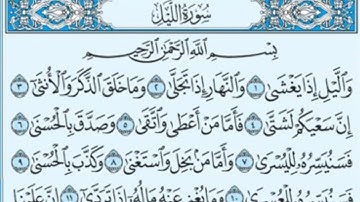 سُورَةُ اللَّيْلِ
بِسْمِ اللَّهِ الرَّحْمَٰنِ الرَّحِيمِ
وَاللَّيْلِ إِذَا يَغْشَىٰ ١ وَالنَّهَارِ إِذَا تَجَلَّىٰ ٢ وَمَا خَلَقَ الذَّكَرَ وَالْأُنثَىٰ ٣
إِنَّ سَعْيَكُمْ لَشَتَّىٰ ٤ فَأَمَّا مَنْ أَعْطَىٰ وَاتَّقَىٰ ٥ وَصَدَّقَ بِالْحُسْنَىٰ ٦
فَسَنُيَسِّرُهُ لِلْيُسْرَىٰ ٧ وَأَمَّا مَنْ بَخِلَ وَاسْتَغْنَىٰ ٨ وَكَذَّبَ بِالْحُسْنَىٰ ٩
فَسَنُيَسِّرُهُ لِلْعُسْرَىٰ ١٠ وَمَا يُغْنِي عَنْهُ مَالُهُ إِذَا تَرَدَّىٰ ١١ إِنَّ عَلَيْنَا